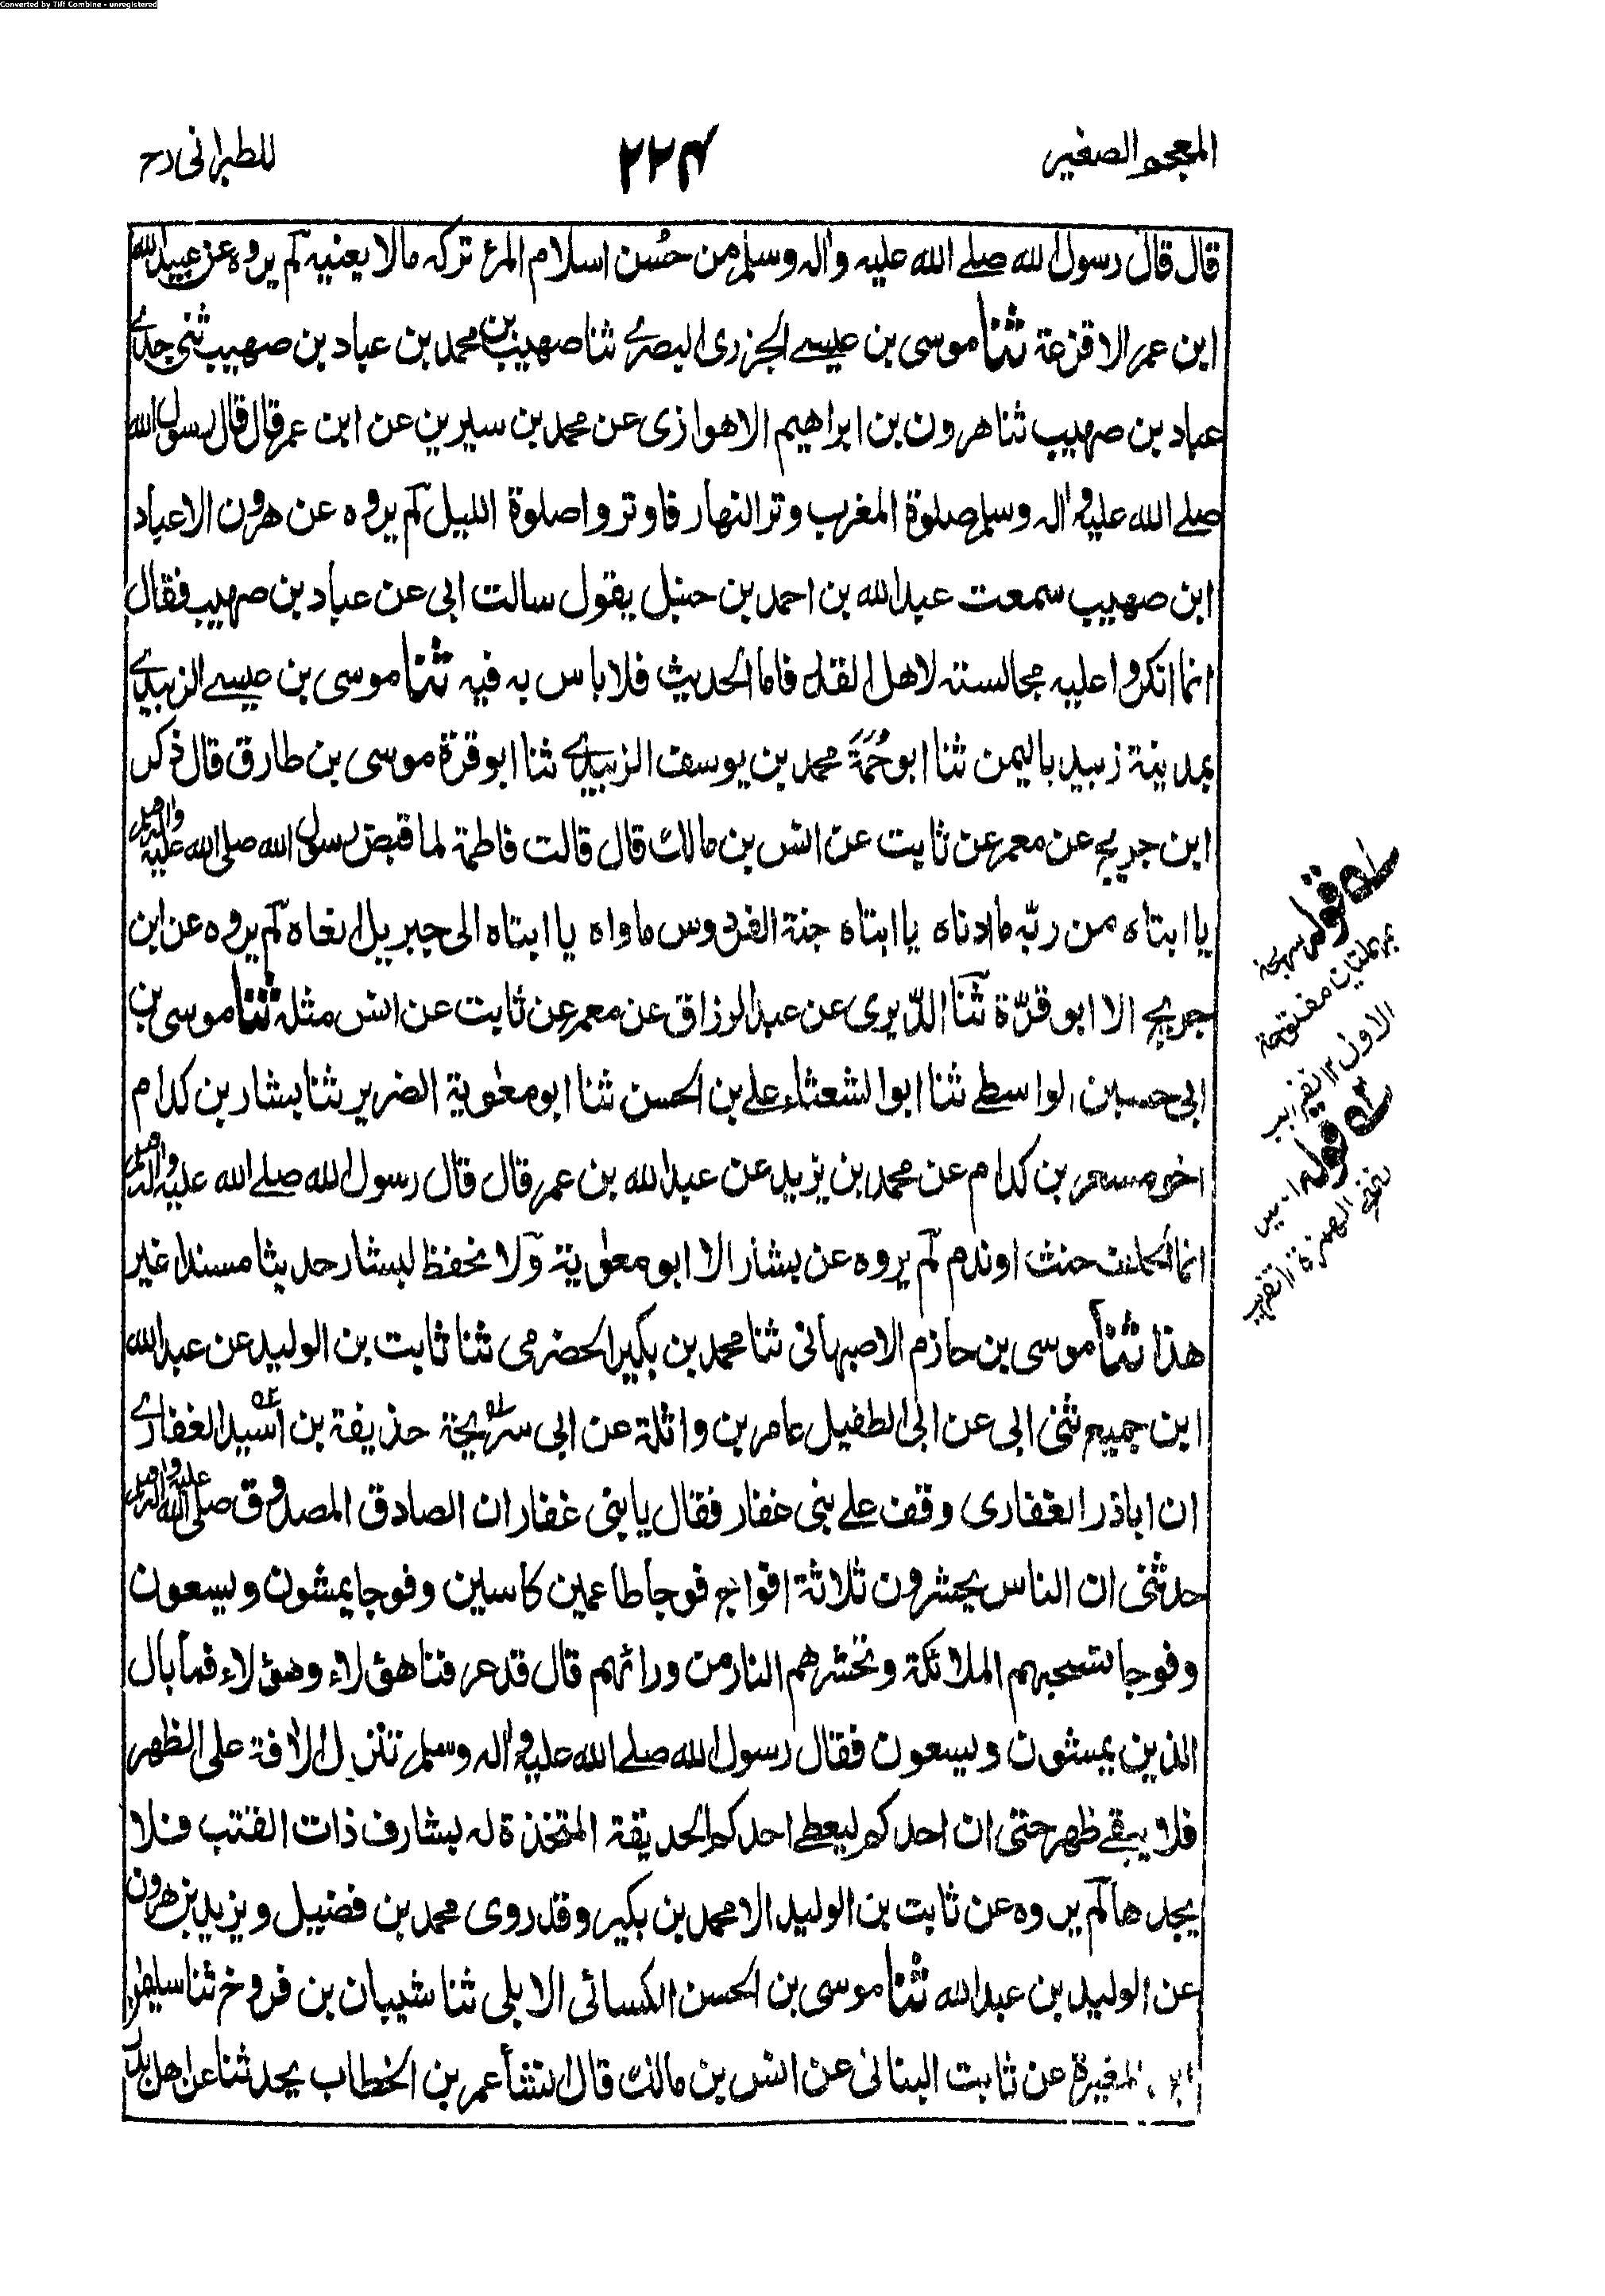 Converted by Tiff Combine - unregistered
المعجم الصغير
٢٢٤
للطبرانى رح
قال قال رسول الله صلے الله عليه واله وسلم من حُسن اسلام المرء تركه مالا يعنيه لم يروه عن عبيد الله
ابن عمر الا قزعة ثنا موسى بن عيسے الجزرى البصرے ثنا صهيب بن محمد بن عباد بن صهيب ثنى جدے
عباد بن صهيب ثنا هرون بن ابراهيم الاهوازى عن محمد بن سيرين عن ابن عمر قال قال رسول الله
صلے الله عليه واله وسلم صلوة المغرب وتر النهار فاوتروا صلوة الليل لم يروه عن هرون الا عباد
ابن صهيب سمعت عبد الله بن احمد بن حنبل يقول سالت ابى عن عباد بن صهيب فقال
انما انكروا عليه مجالسته لاهل القدر فاما الحديث فلا باس به فيه ثنا موسى بن عيسے الزبيدے
بمدينة زبيد باليمن ثنا ابو حُمَةَ محمد بن يوسف الزبيدے ثنا ابو قرة موسى بن طارق قال ذكر
ابن جريج عن معمر عن ثابت عن انس بن مالك قال قالت فاطمة لما قبض رسول الله صلى الله عليه واله وسلم
يا ابتاه من ربّه ما ادناه يا ابتاه جنة الفردوس ماواه يا ابتاه الى جبريل انعاه لم يروه عن ابن
جريج الا ابو قرّة ثنا الدّبرى عن عبد الرزاق عن معمر عن ثابت عن انس مثله ثنا موسى بن
ابى حصين الواسطے ثنا ابو الشعثاء علے بن الحسن ثنا ابو معٰوية الضرير ثنا بشار بن كدام
اخو مسعر بن كدام عن محمد بن يزيد عن عبد الله بن عمر قال قال رسول الله صلے الله عليه واله وسلم
انما الحلف حنث او ندم لم يروه عن بشار الا ابو معٰوية ولا نحفظ لبشار حديثا مسندا غير
هذا ثنا موسى بن حازم الاصبهانى ثنا محمد بن بكير الحضرمى ثنا ثابت بن الوليد عن عبد الله
ابن جميع ثنى ابى عن ابى الطفيل عامر بن واثلة عن ابى سريحة حذيفة بن اسيد الغفارے
ان اباذر الغفارى وقف علے بنى غفار فقال يا بنى غفار ان الصادق المصدوق صلى الله عليه واله وسلم
حدثنى ان الناس يحشرون ثلاثة افواج فوجا طاعمين كاسين وفوجا يمشون ويسعون
وفوجا تسحبهم الملائكة وتحشرهم النار من ورائهم قال قد عرفنا هؤلاء وهؤلاء فما بال
الذين يمشون ويسعون فقال رسول الله صلے الله عليه واله وسلم تنزل الافة على الظهر
فلا يبقے ظهر حتى ان احدكم ليعطے احدكم الحديقة المتخذة له بشارف ذات القتب فلا
يجدها لم يروه عن ثابت بن الوليد الا محمد بن بكير وقد روى محمد بن فضيل ويزيد بن هرون
عن الوليد بن عبد الله ثنا موسى بن الحسن الكسائى الابلى ثنا شيبان بن فروخ ثنا سليمٰن
ابن المغيرة عن ثابت البنانى عن انس بن مالك قال انشأ عمر بن الخطاب يحدثنا عن اهل بدر
له قوله سريحة
بمهملتين مفتوحة
الاول ١٢ تقريب
قوله اسيد
بفتح الهمزة ١٢ تقريب